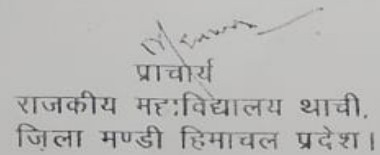 प्राचार्य
राजकीय महाविद्यालय थाची,
ज़िला मण्डी हिमाचल प्रदेश।